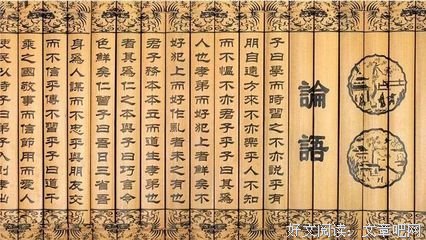 論語
子曰學而時習之不亦説乎有
朋自遠方來不亦樂乎人不知
而不慍不亦君子乎子曰其爲
人也孝弟而好犯上者鮮矣不
好犯上而好作亂者未之有也
君子務本本立而道生孝弟也
者其爲仁之本與子曰巧言令
色鮮矣仁曾子曰吾日三省吾
身爲人謀而不忠乎與朋友交
而不信乎傳不習乎子曰道千
乘之國敬事而信節用而愛人
使民以時子曰弟子入則孝出
好文阅读：文章吧网